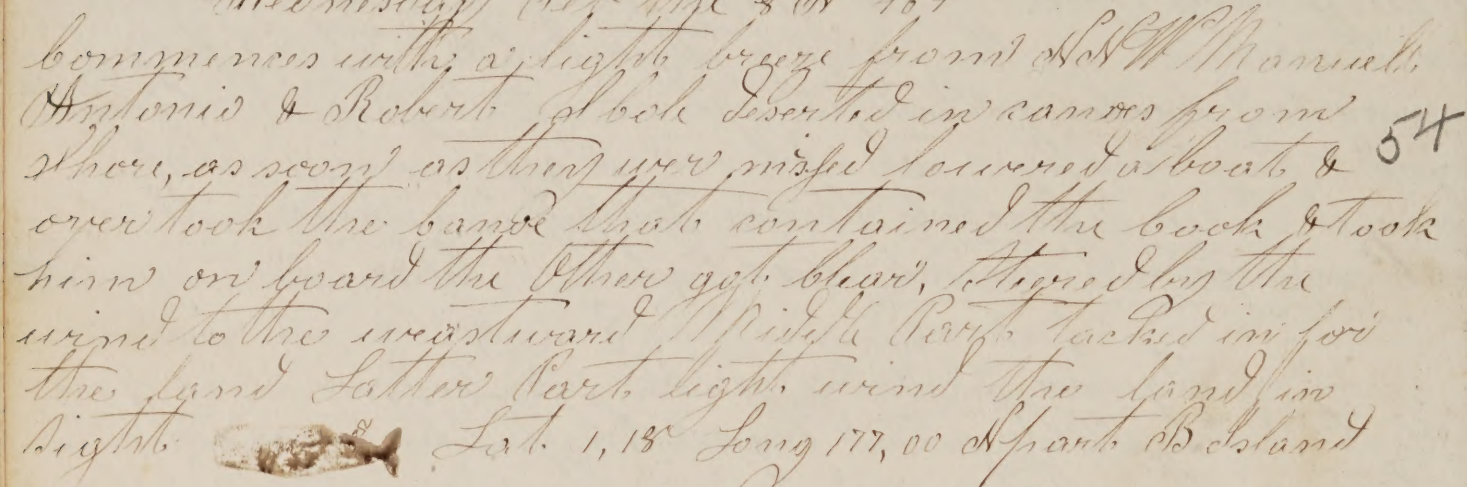 Commences with a light breeze from NNW Manuel
Antonio & Robert deserted in canoes from
shore, as soon as they wer missed lowered a boat &
54
over took the Canoe that contained the Cook & took
him on board the Other got Clear, Steered by the
wind to the weastward Middle Part tacked in for
the land Latter Part light wind the land in
sight Lat 1,18 Long 177,00 N part B Island